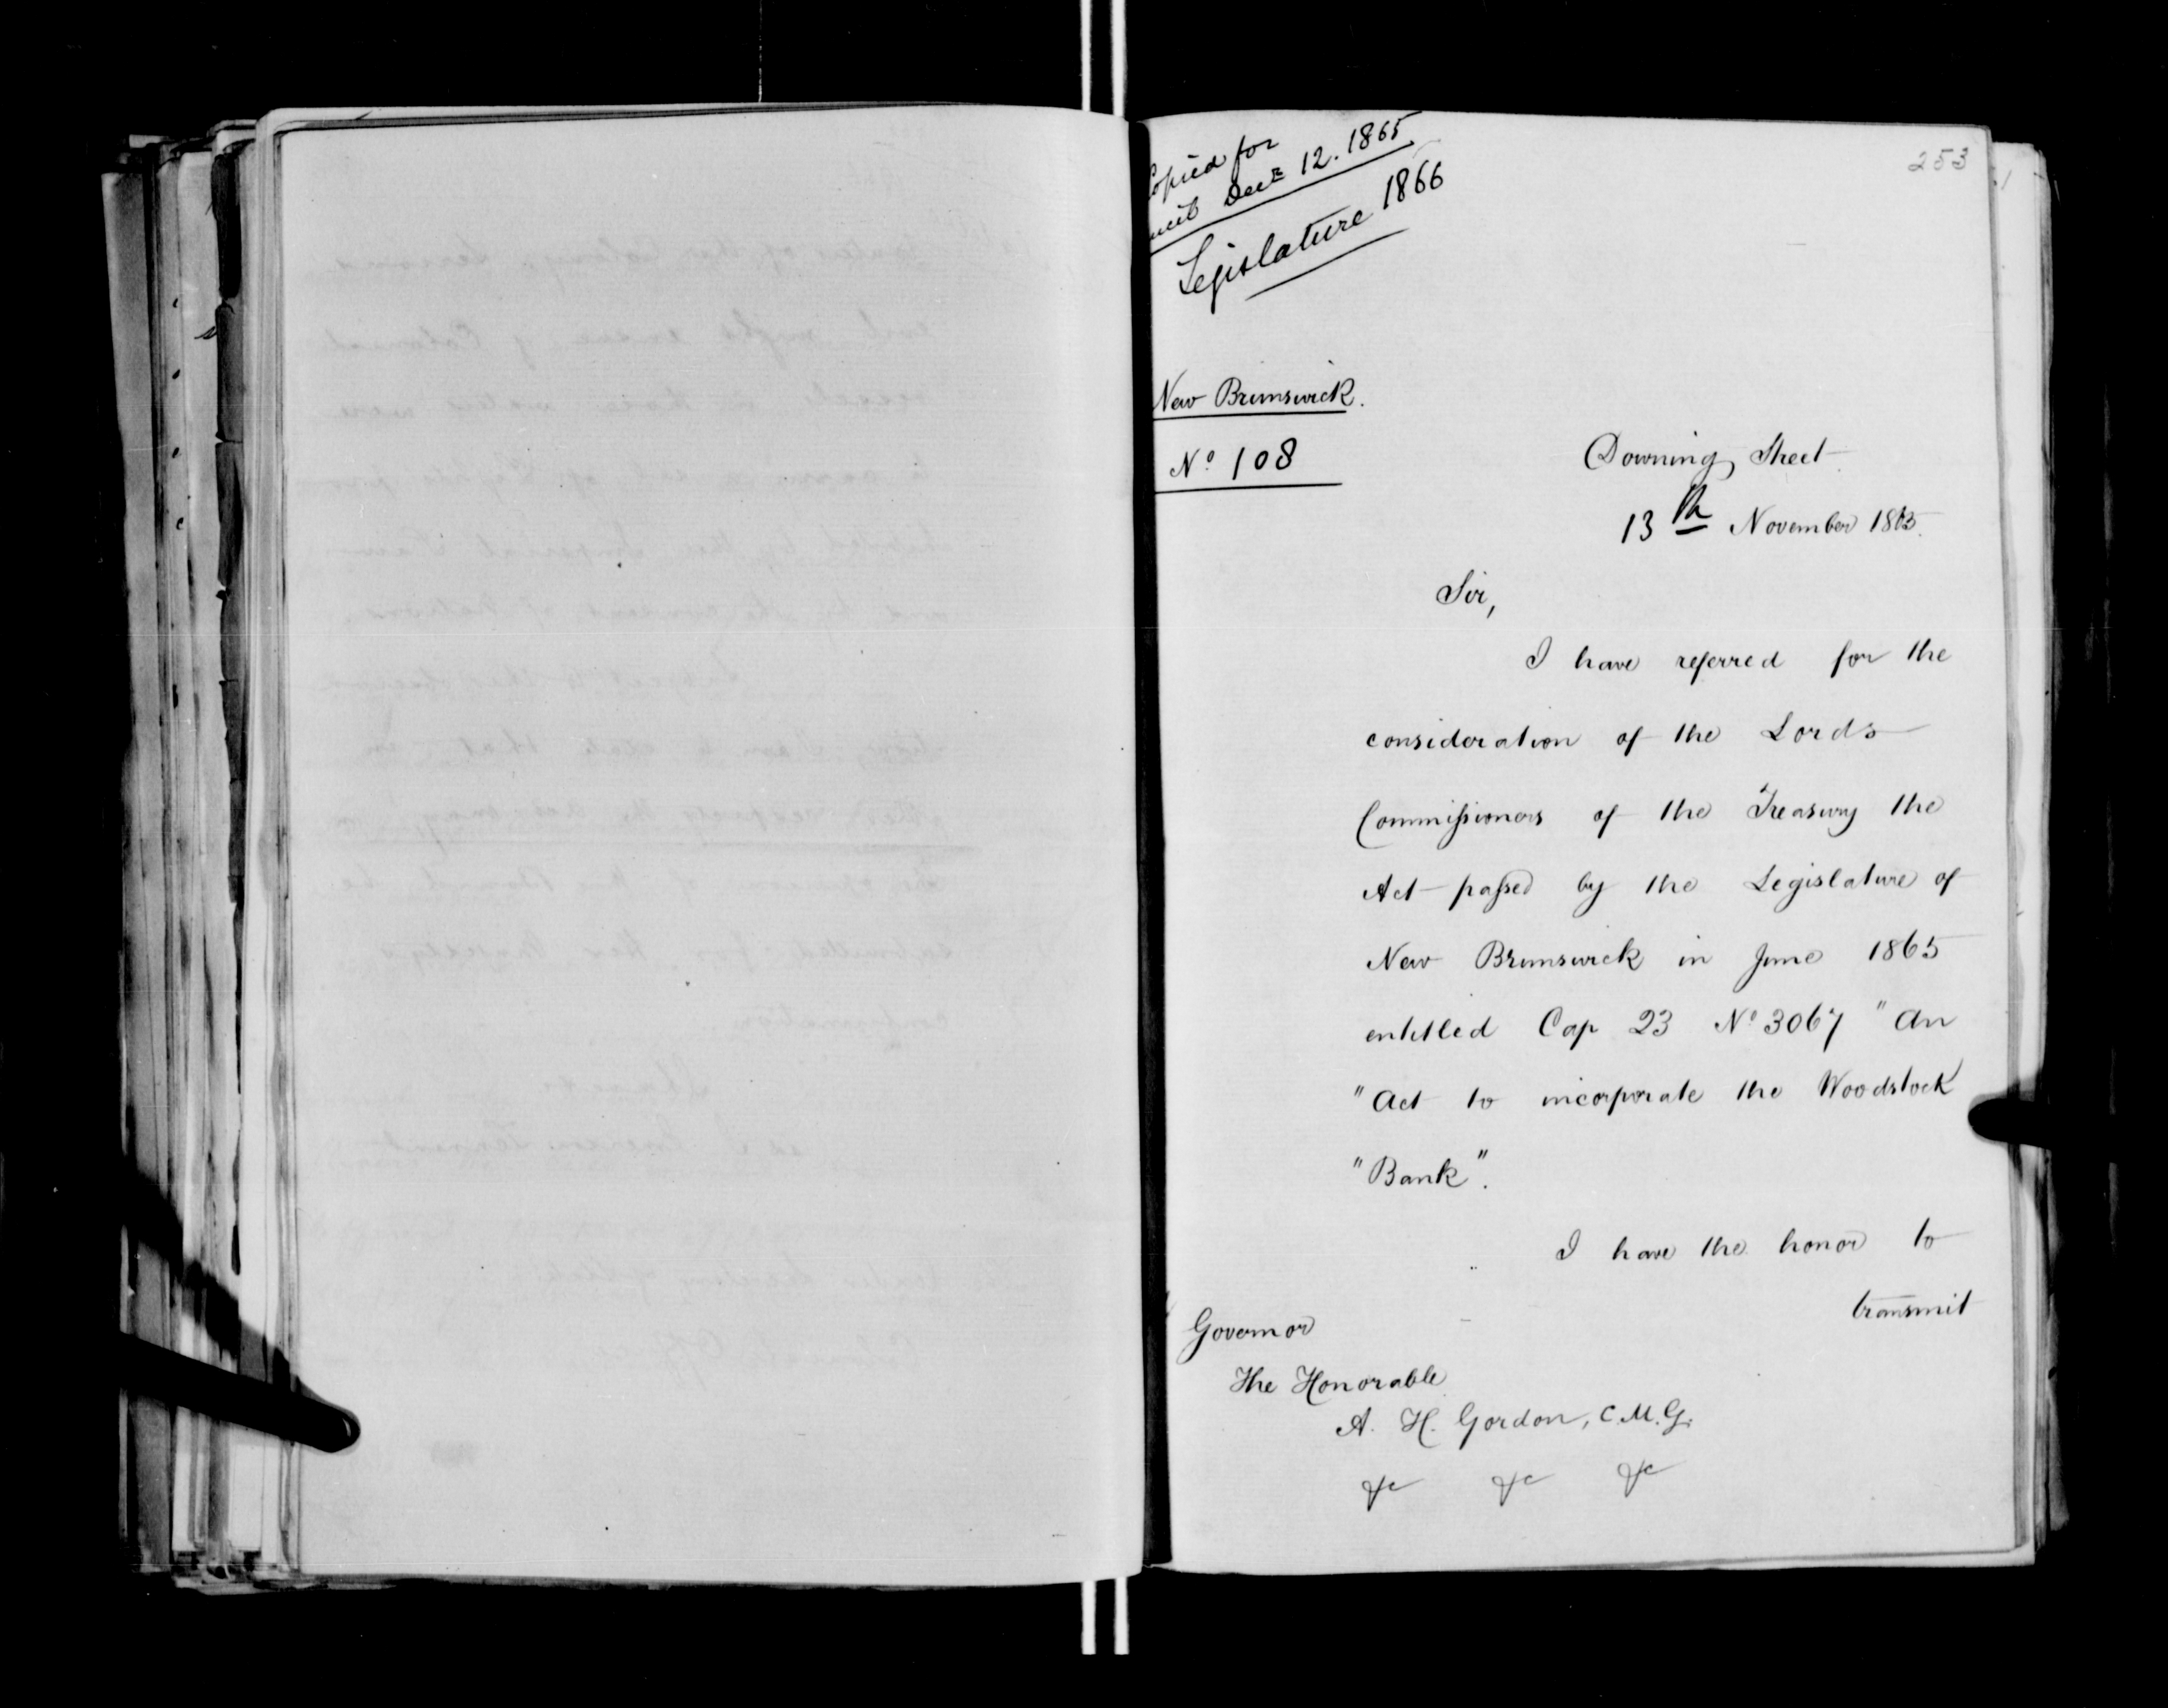 Copied for
Decr 12. 1865
Legislature 1866
253
New Brunswick.
No 108
Downing Street
13th November 1865.
Sir,
I have referred for the
consideration of the Lords
Commissioners of the Treasury the
Act passed by the Legislature of
New Brunswick in June 1865
entitled Cap 23 No 3067 "An
"Act to incorporate the Woodstock
"Bank".
I have the honor to
transmit
Governor
The Honorable
A. H. Gordon, C.M.G.
&c &c &c